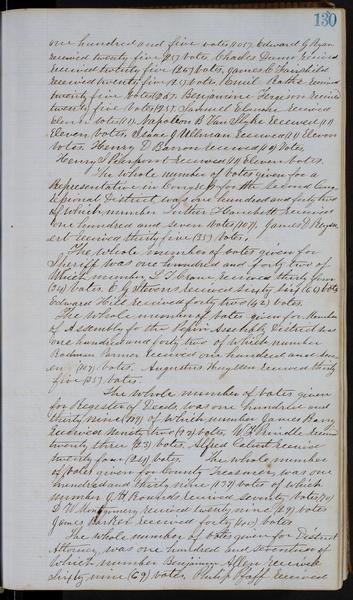 130
one hundred and five votes (105). Edward G Ryan
received twenty five (25) votes. Charles Dunn received
received twenty five (25) votes. James C Fairchild
received twenty five (25) votes. Emil Rothe received
twenty five votes (25). Benjamine Ferguson received
twenty five votes (25). Samuel received
Eleven votes (11). Napoleon B Van Slyke received (11)
Eleven votes. Isaac J Ullman received (11) Eleven
votes. Henry D Barron received (10) votes.
Henry S Pierpont received (11) Eleven votes.
The whole number of votes given for a
Representative in Congress for the Second Cong-
ressional District was one hundred and forty two
of which number Luther Hanchett received
one hundred and seven votes (107). James D Reym-
ert received thirty five (35) votes.
The whole number of votes given for
Sheriff was one hundred and forty two of
Which number received thirty four
(34) votes. E G Stevens received sixty six (66) vote
Edward Hill received forty two (42) votes.
The whole number of votes given for Member
of Assembly for the Pepin Assembly District was
one hundred and forty two of which number
Rodman Palmer received one hundred and sev-
en (107) votes. Augustus received thirty
five (35) votes.
The whole number of votes given
for Register of Deeds was one hundred and
thirty nine (139) of which number James Barry
received ninety two (92) votes. received
twenty three (23) votes. Alfred received
twenty four (24) votes. The whole number
of votes given for County Treasurer was one
hundred and thirty nine (139) votes of which
number J. H. Rounds received seventy votes (70)
D W Montgomery received twenty nine (29) votes
James Barker received forty (40) votes.
The whole number of votes given for District
Attorney was one hundred and seventeen of
Which number Benjamin Allen received
sixty nine (69) votes. Philip Pfaff received